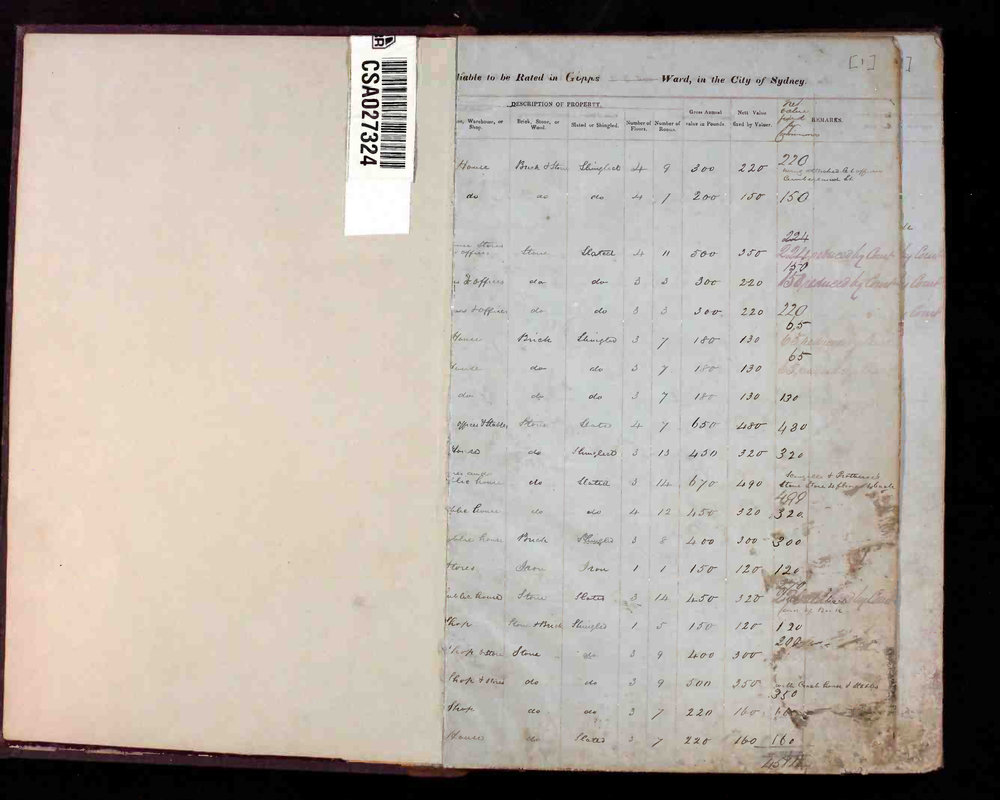 CSA027324
[1]
liable to be Rated in Gipps Ward, in the City of Sydney.
DESCRIPTION OF PROPERTY.
Warehouse, or Shop. Brick, Stone, or Wood. Slated or Shingled. Number of Floors. Number of Rooms. Gross Annual value in Pounds. Nett Value fixed by Valuer. REMARKS.
House Brick & Stone Shingled 4 9 300 220 220
Cumberland St
do do do 4 7 200 150 150
224
offices Stone Slated 4 11 500 350 224 reduced by Court
150
& offices do do 3 3 300 220 150 reduced by Court
& offices do do 3 3 300 220 220
65
House Brick Shingled 3 7 180 130 65
65
do do 3 7 180 130
do do do 3 7 180 130 130
offices & Stables Stone Slated 4 7 650 480 480
House do Shingled 3 13 450 320 320
and
house do Slated 3 14 670 490
490
house do do 4 12 450 320 320
house Brick Shingled 3 8 400 300 300
Stores Iron Iron 1 1 150 120 120
Public house Stone Slated 3 14 450 320
Shop Stone & Brick Shingled 1 5 150 120 120
200
Shop & store Stone do 3 9 400 300
Shop & stores do do 3 9 500 350 with Coach house & Stables
350
Shop do do 3 7 220 160
House do Slated 3 7 220 160 160